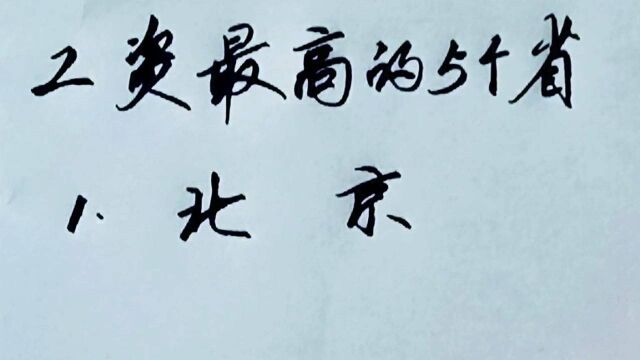 工资最高的5个省
1. 北京